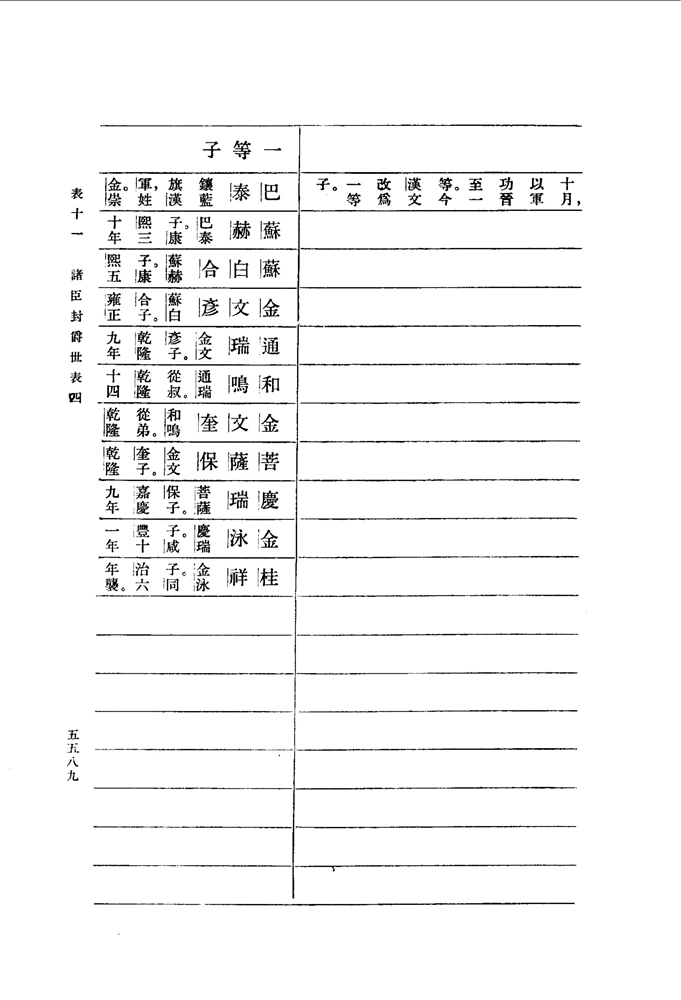 十月,以軍功晉至一等。今漢文改爲一等子。
一等子
巴泰 鑲藍旗漢軍,姓金。崇
蘇赫 巴泰子。康熙三十年
蘇白合 蘇赫子。康熙五
金文彥 蘇白合子。雍正
通瑞 金文彥子。乾隆九年
和鳴 通瑞從叔。乾隆十四
金文奎 和鳴從弟。乾隆
菩薩保 金文奎子。乾隆
慶瑞 菩薩保子。嘉慶九年
金泳 慶瑞子。咸豐十一年
桂祥 金泳子。同治六年襲。
表十一 諸臣封爵世表四
五五八九